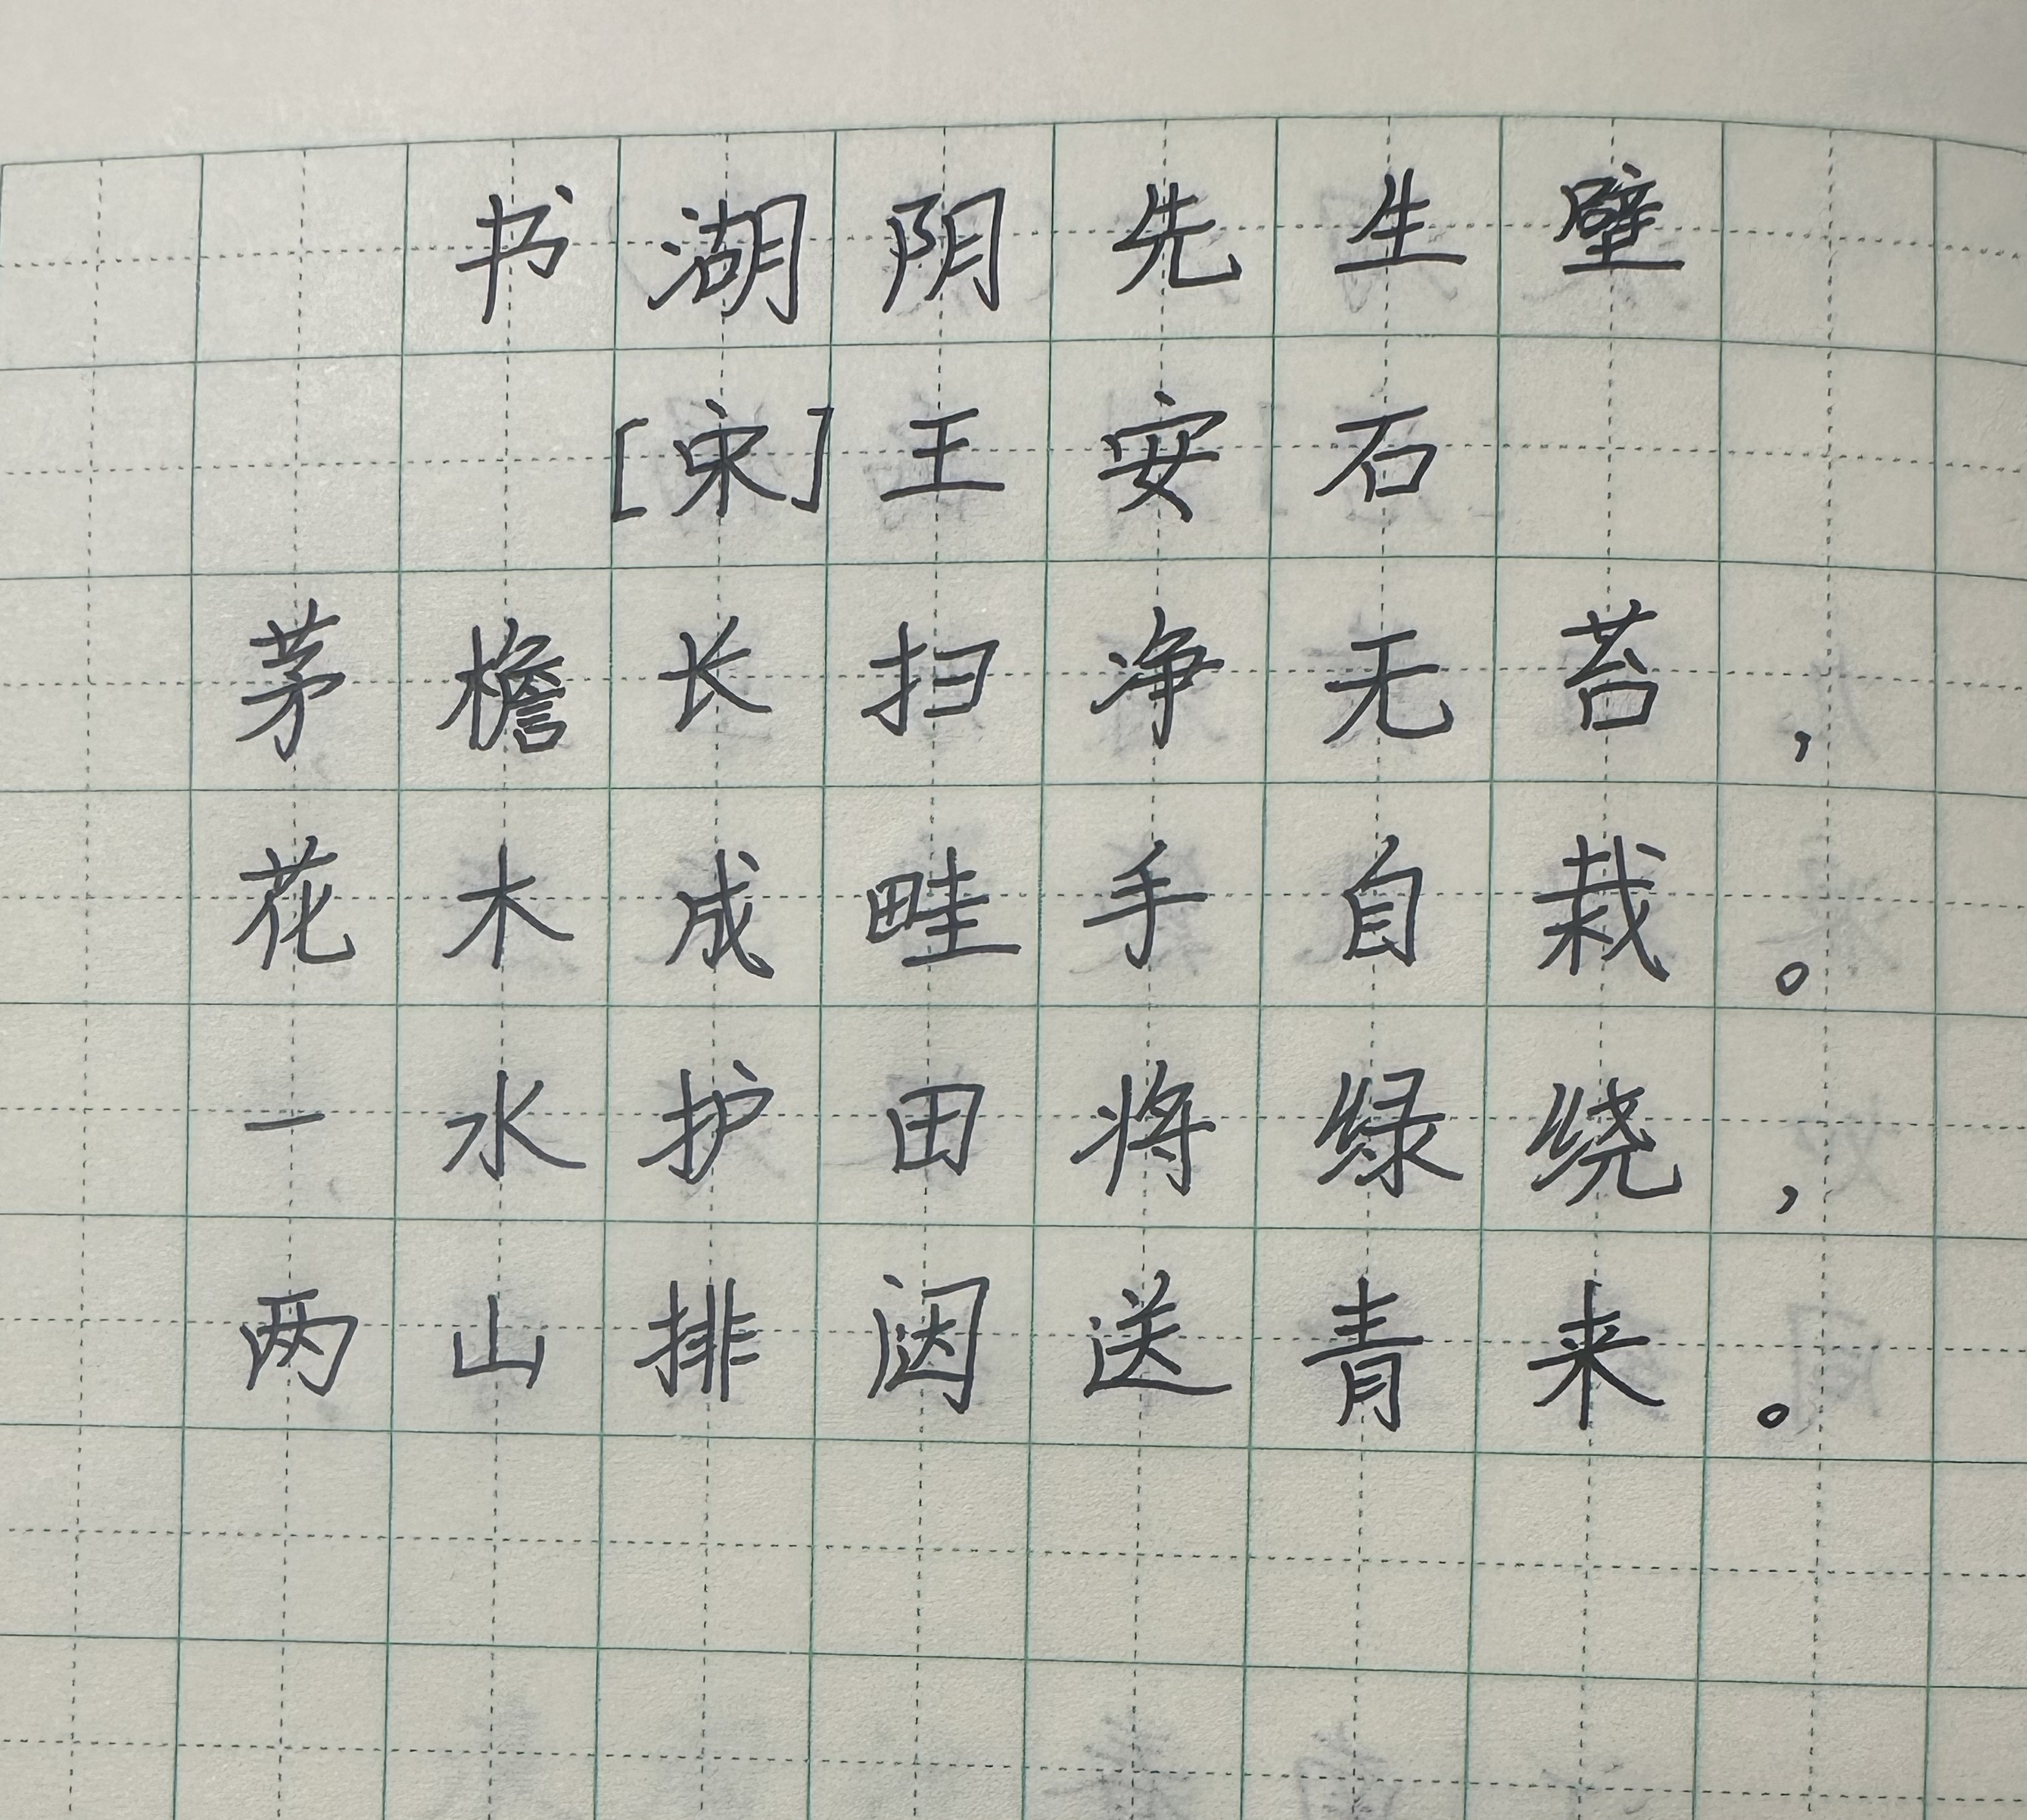 书湖阴先生壁
[宋]王安石
茅檐长扫净无苔，
花木成畦手自栽。
一水护田将绿绕，
两山排闼送青来。